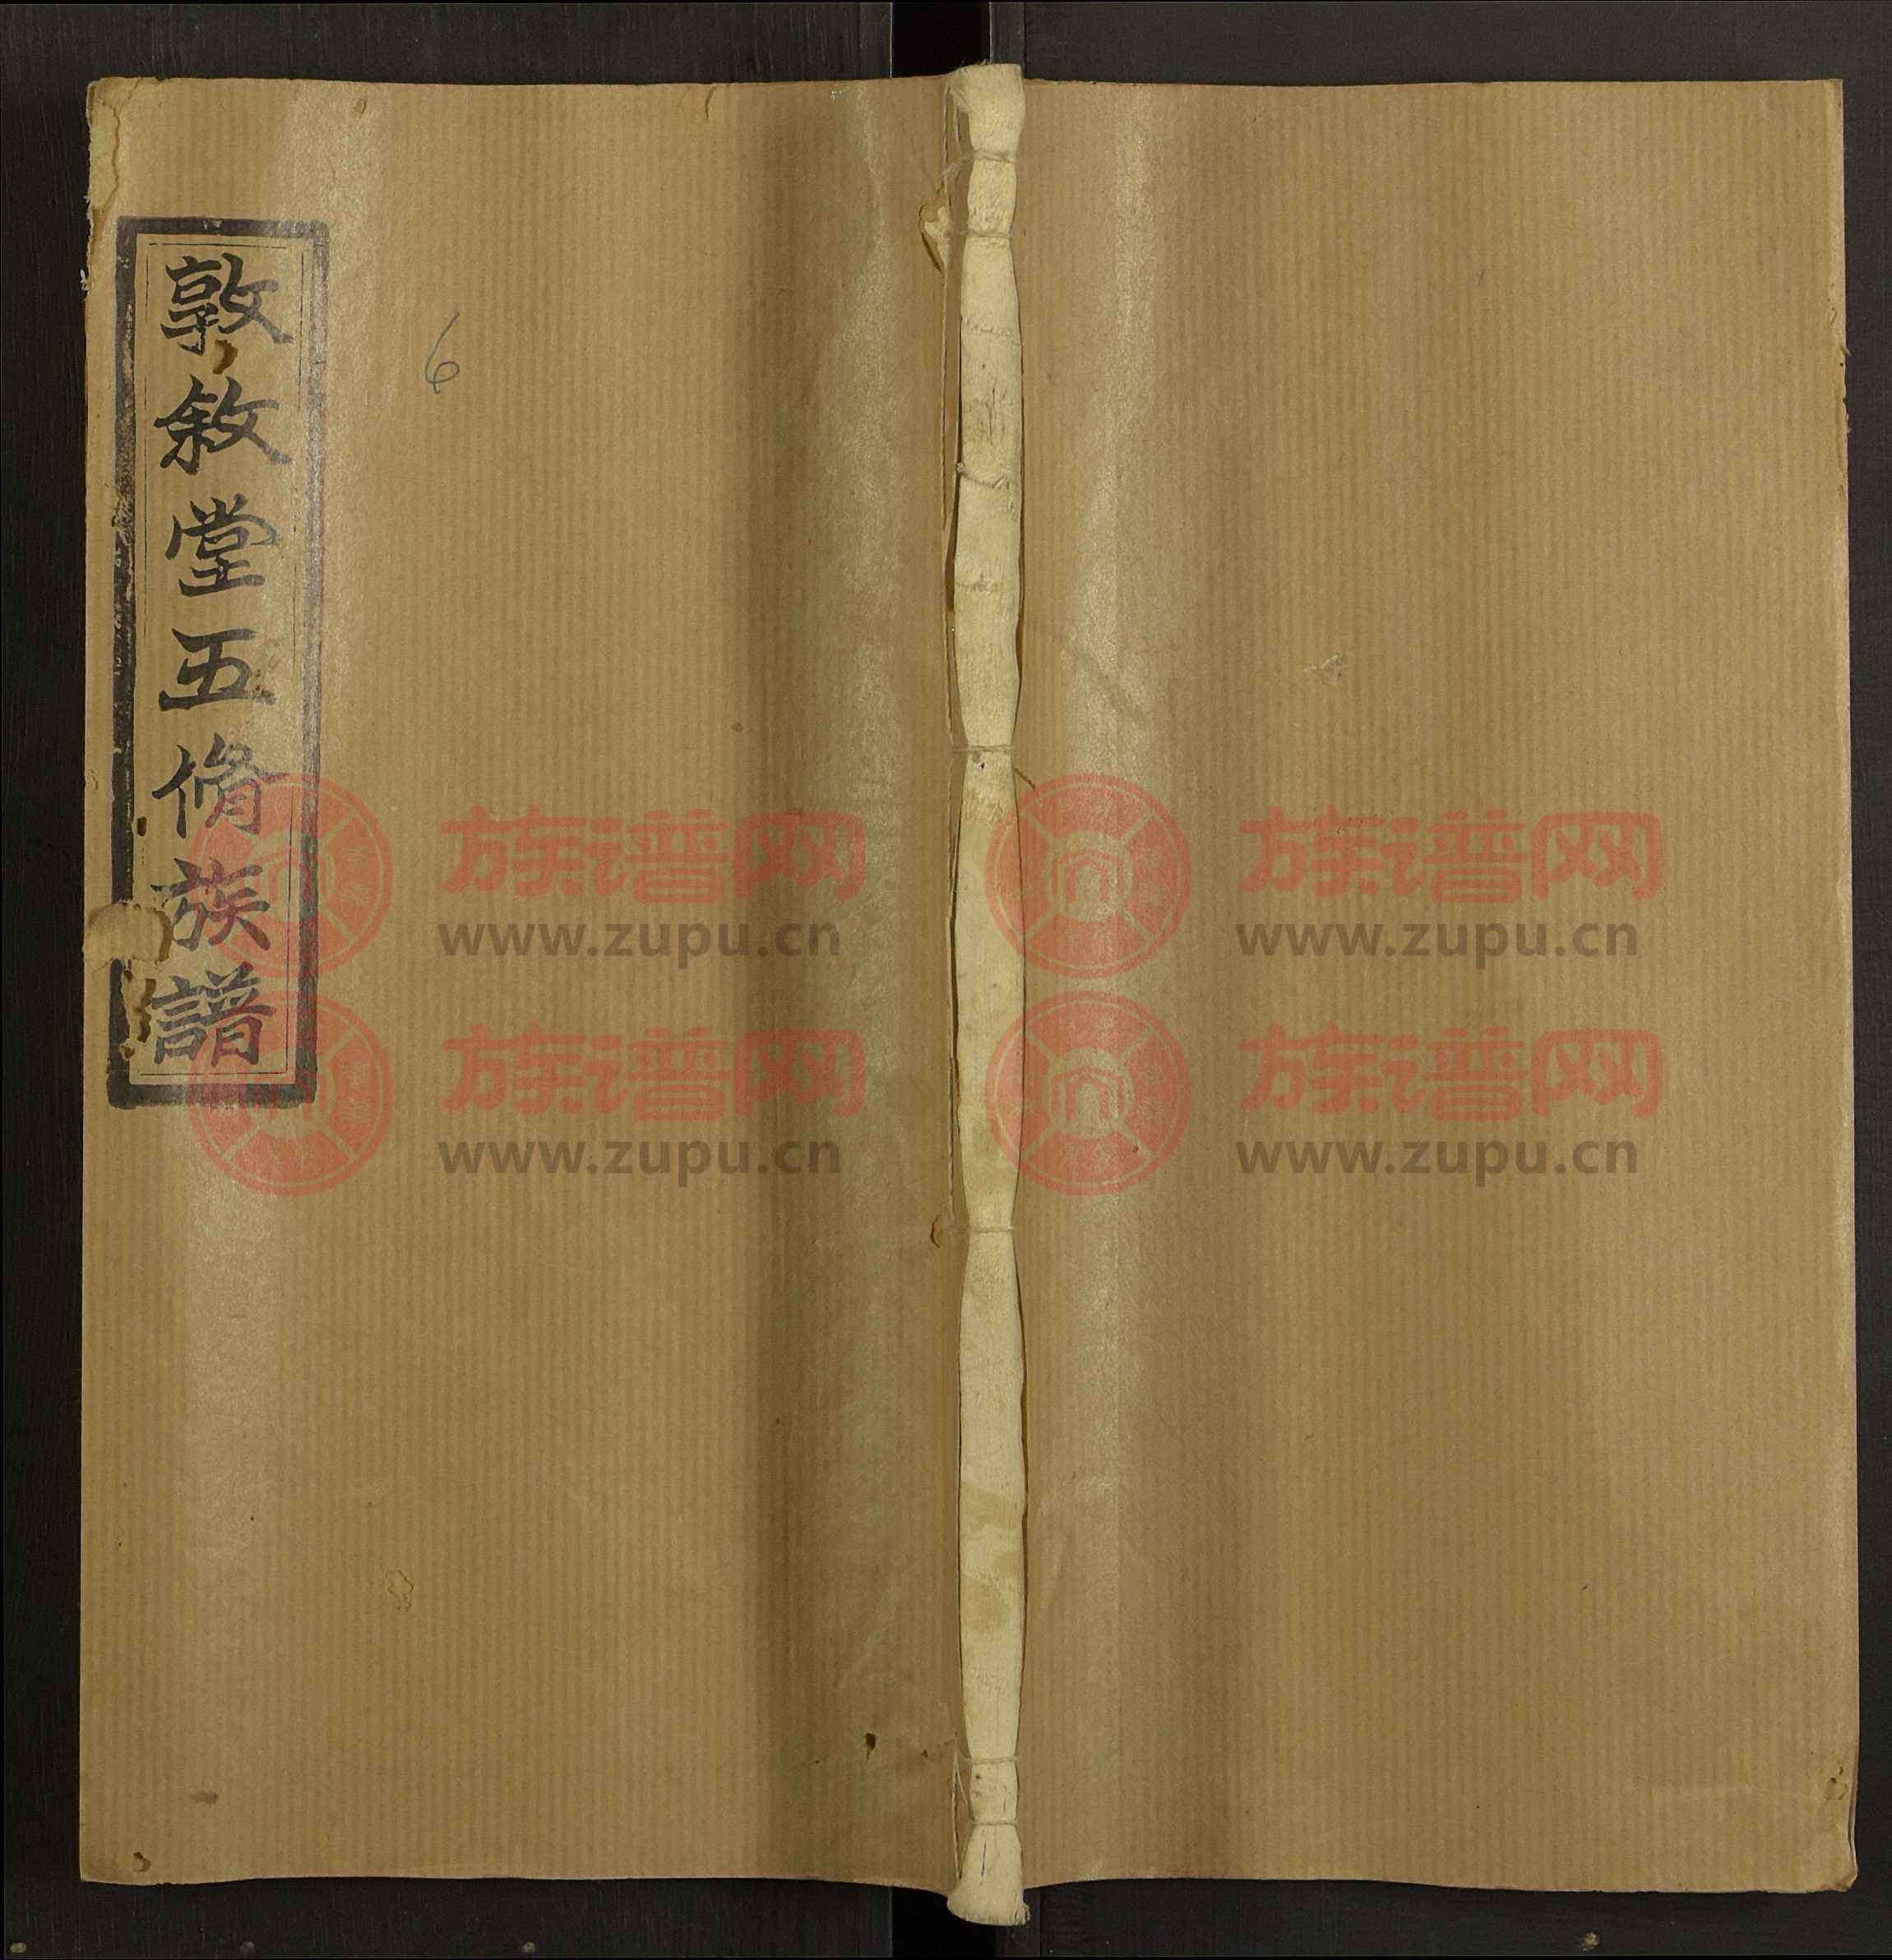 敦敘堂五脩族譜
6
族谱网
www.zupu.cn
族谱网
www.zupu.cn
族谱网
www.zupu.cn
族谱网
www.zupu.cn